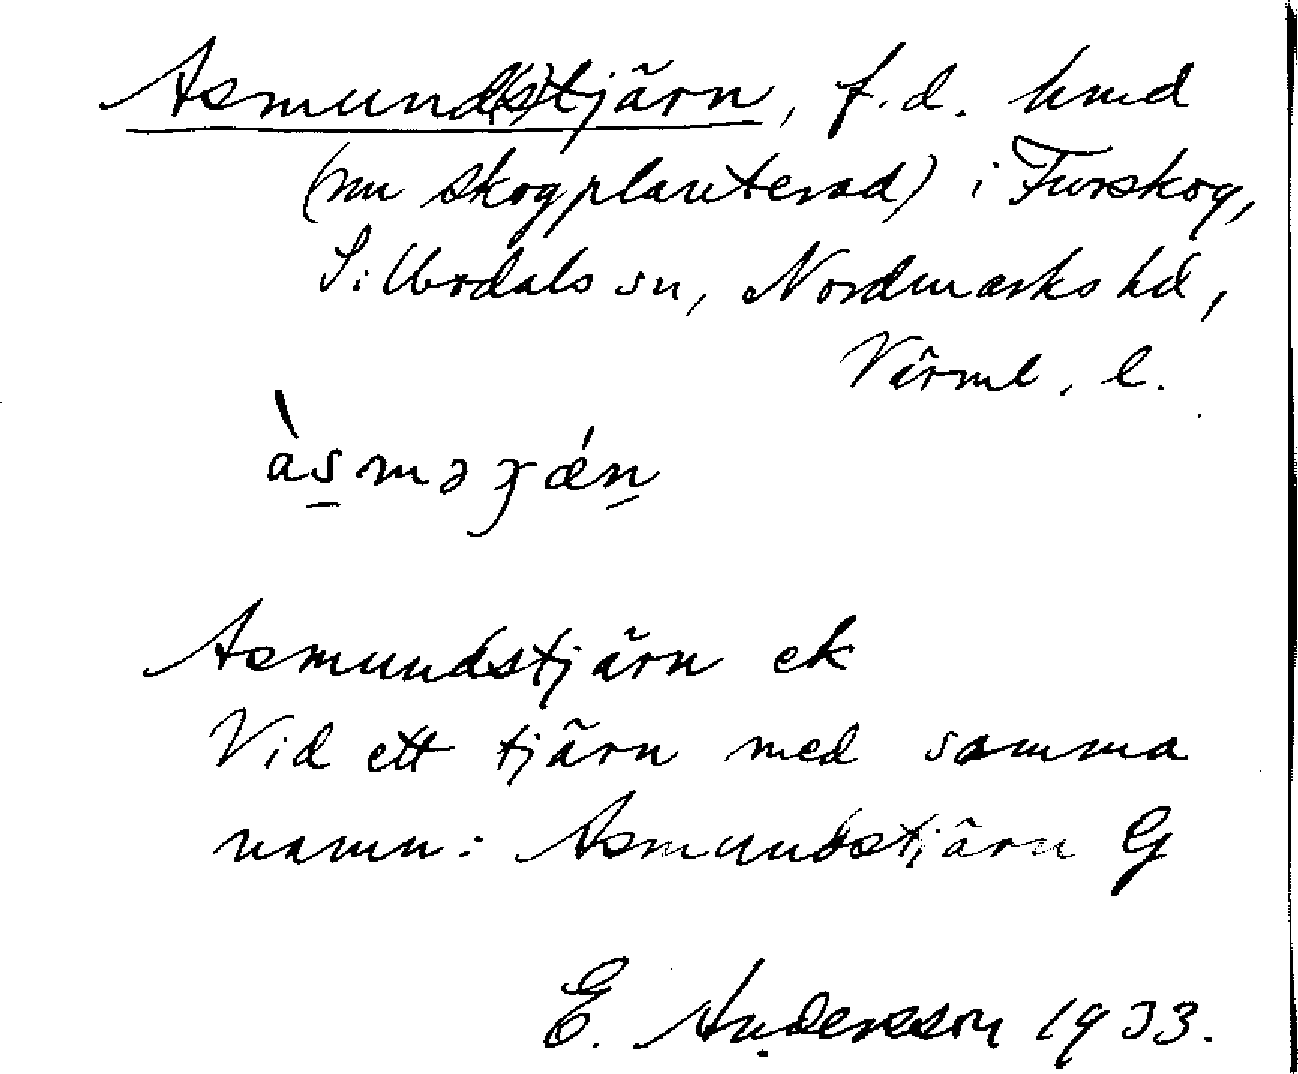 Asmund(s)tjärn, f.d. hmd
(nu skogplanterad) i Furskog,
Silbodals sn, Nordmarks hd,
Värml. l.
àsməʒǽn
Asmundstjärn ek
Vid ett tjärn med samma
namn: Asmundstjärn G
E. Andersson 1933.